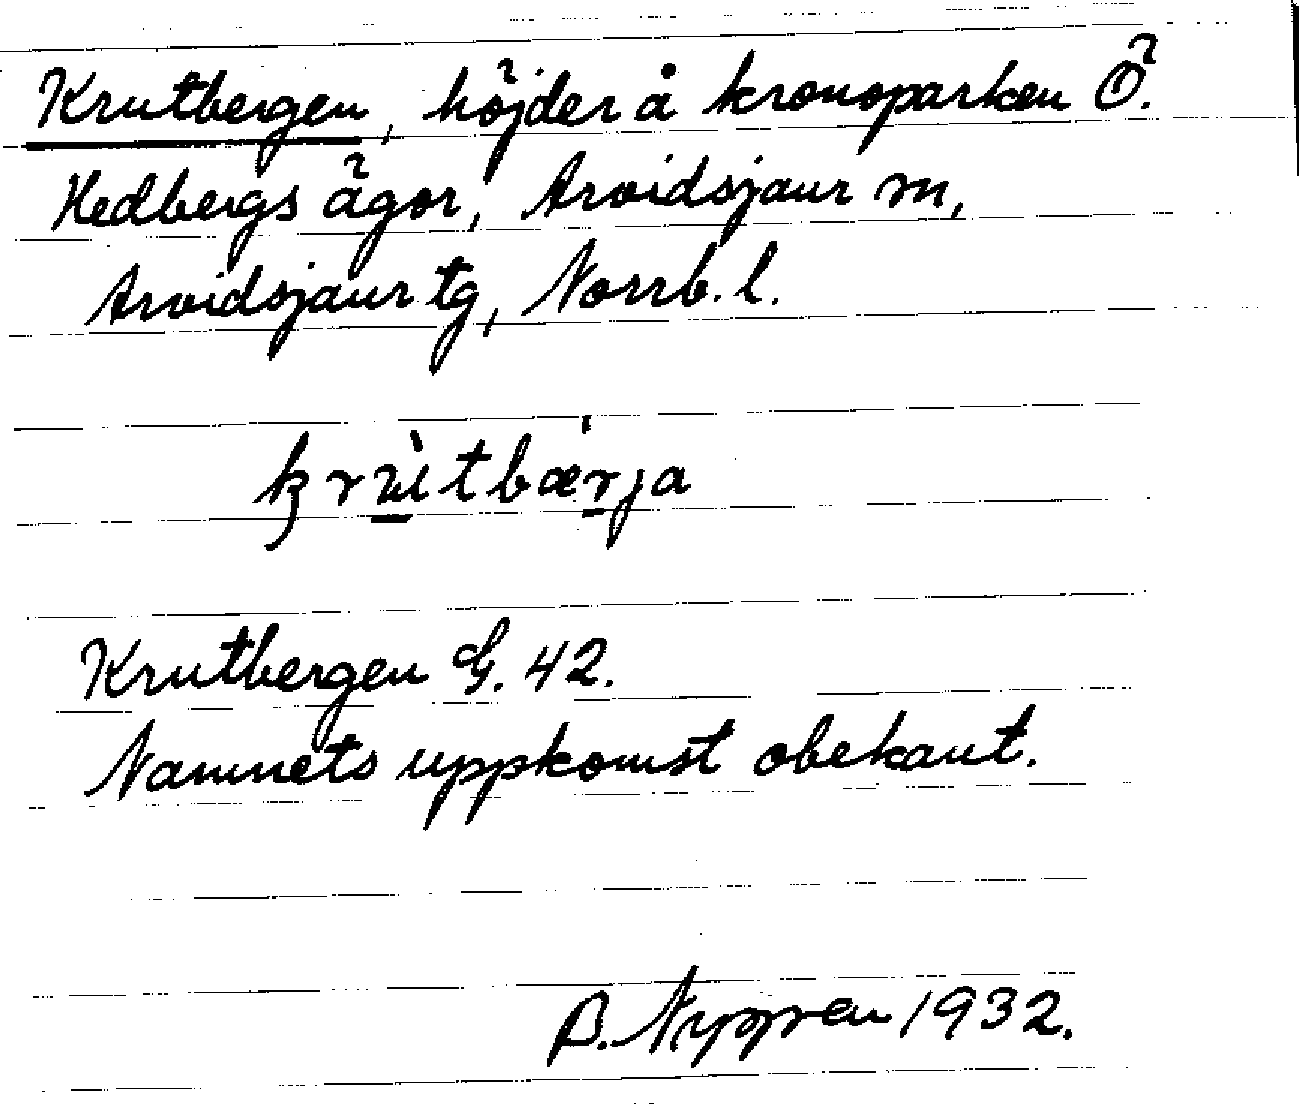 Krutbergen, höjder å kronoparken Ö.
Hedbergs ägor, Arvidsjaur m,
Arvidsjaur tg, Norrb. l.
krùtbærja
Krutbergen G. 42.
Namnets uppkomst obekant.
1932.